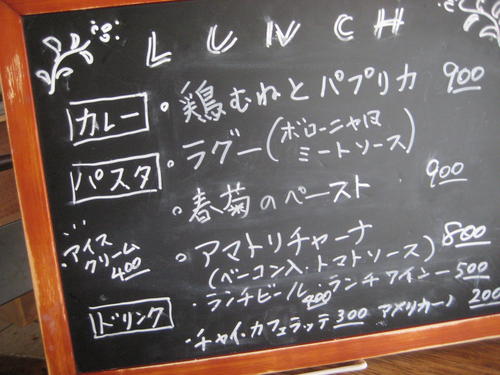 LUNCH
カレー ・鶏むねとパプリカ 900
パスタ ・ラグー(ボローニャ風
ミートソース)
900
・春菊のペースト
・アマトリチャーナ 800
(ベーコン入・トマトソース)
アイス
クリーム
400
ドリンク ・ランチビール 400 ・ランチワイン 500
・チャイ・カフェラッテ 300 アメリカーノ 200